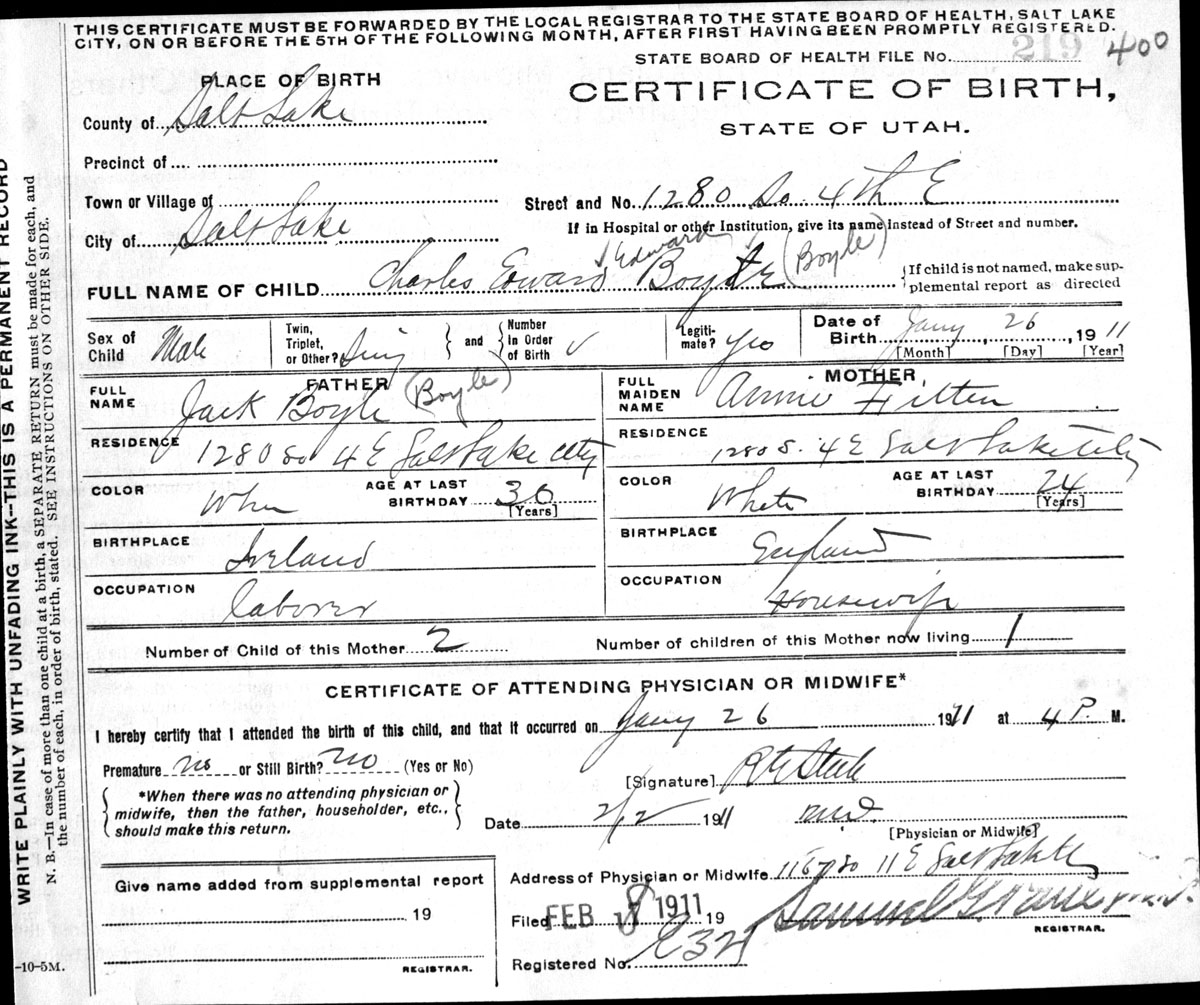 THIS CERTIFICATE MUST BE FORWARDED BY THE LOCAL REGISTRAR TO THE STATE BOARD OF HEALTH, SALT LAKE
CITY, ON OR BEFORE THE 5TH OF THE FOLLOWING MONTH, AFTER FIRST HAVING BEEN PROMPTLY REGISTERED.
STATE BOARD OF HEALTH FILE No. 219 400
PLACE OF BIRTH
CERTIFICATE OF BIRTH,
STATE OF UTAH.
County of Salt Lake
Precinct of
Town or Village of
Street and No. 1280 So. 4th E
City of Salt Lake
If in Hospital or other Institution, give its name instead of Street and number.
Edward (Boyle)
FULL NAME OF CHILD Charles Edward
{If child is not named, make sup-
plemental report as directed
Sex of Child Male
Twin, Triplet, or Other? Sing } and { Number In Order of Birth √
Legiti-mate? Yes
Date of Birth Jany 26, 1911
[Month] [Day] [Year]
FATHER
FULL NAME Jack Boyle (Boyle)
MOTHER,
FULL MAIDEN NAME Annie
RESIDENCE 1280 So 4 E Salt Lake City
RESIDENCE 1280 S. 4 E Salt Lake City
COLOR Whi AGE AT LAST BIRTHDAY 36 [Years]
COLOR White AGE AT LAST BIRTHDAY 24 [Years]
BIRTHPLACE Ireland
BIRTHPLACE England
OCCUPATION laborer
OCCUPATION Housewife
Number of Child of this Mother 2 Number of children of this Mother now living 1
CERTIFICATE OF ATTENDING PHYSICIAN OR MIDWIFE*
I hereby certify that I attended the birth of this child, and that it occurred on Jany 26 1911 at 4 P. M.
Premature no or Still Birth? no (Yes or No)
[Signature]
{*When there was no attending physician or
midwife, then the father, householder, etc.,
should make this return.}
Date 2/2 1911 M.D.
[Physician or Midwife]
Give name added from supplemental report
19
REGISTRAR.
Address of Physician or Midwife 1167 So 11 E Salt Lake
Filed FEB 8 1911 19 Samuel G.
REGISTRAR.
Registered No.
-10-5M.
WRITE PLAINLY WITH UNFADING INK--THIS IS A PERMANENT RECORD
N. B.—In case of more than one child at a birth, a SEPARATE RETURN must be made for each, and
the number of each, in order of birth, stated. SEE INSTRUCTIONS ON OTHER SIDE.